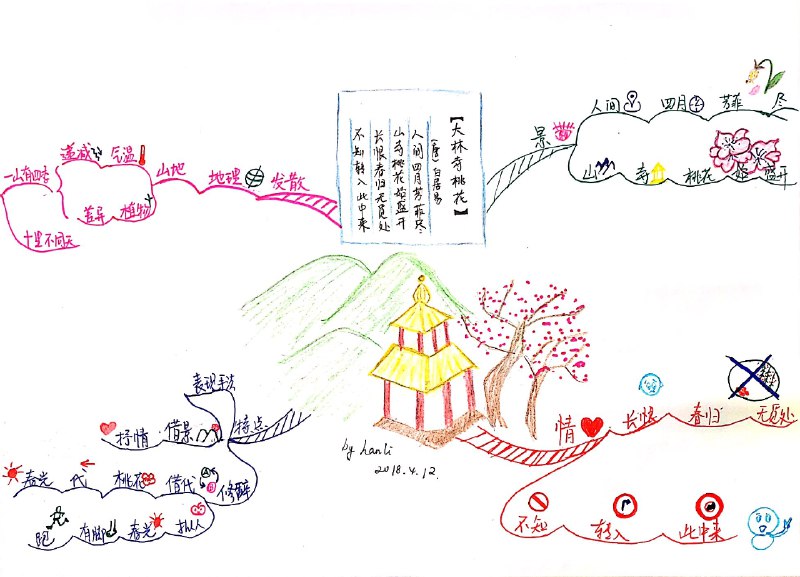 【大林寺桃花】
(唐) 白居易
人间四月芳菲尽.
山寺桃花始盛开
长恨春归无觅处
不知转入此中来
景
人间 四月 芳菲 尽
山 寺 桃花 始 盛开
情
长恨 春归 无觅处
不知 转入 此中来
特点
表现手法
借景 抒情
修辞
借代 桃花 代 春光
拟人 春光 有脚 跑
发散
地理
山地
气温 递减
植物 差异
一山有四季
十里不同天
by hanli
2018.4.12.